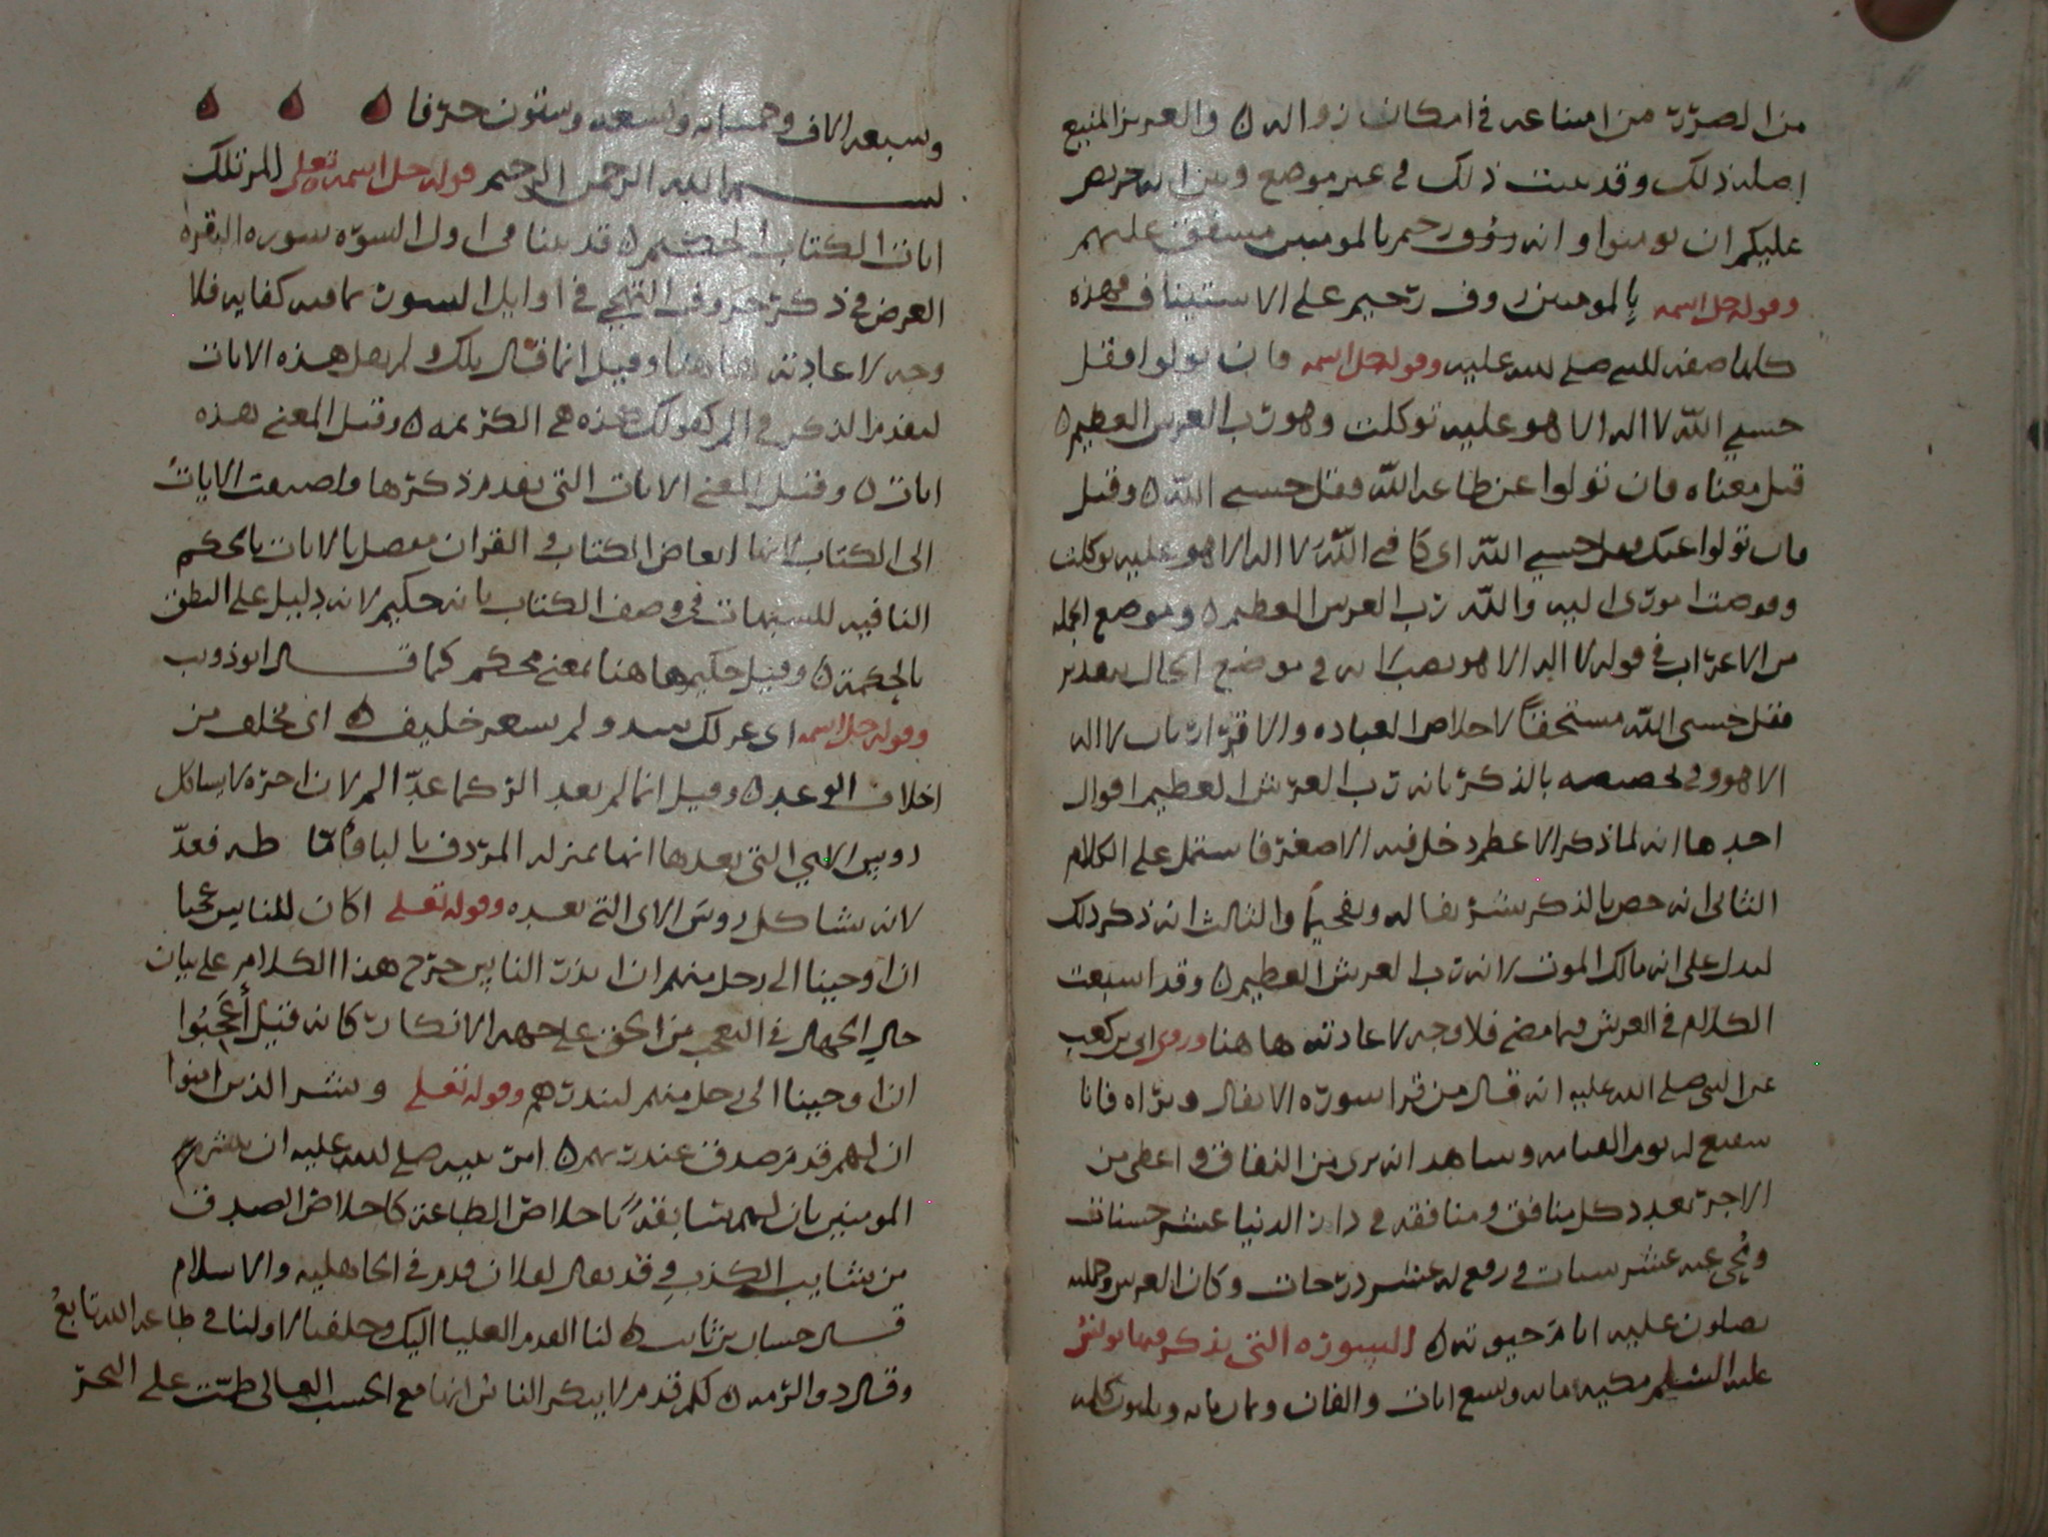 من الضرر من امتناعه في امكان زواله ٥ والعزيز المنيع
اصله ذلك وقد بينت ذلك في غير موضع وبين انه حريص
عليكم ان تومنوا وانه رؤوف رحيم بالمومنين مشفق عليهم
وقوله جل اسمه بالمومنين روف رحيم على الاستيناف فهذه
كلها صفه للنبي صلى الله عليه وقوله جل اسمه فان تولوا فقل
حسبي الله لا اله الا هو عليه توكلت وهو رب العرش العظيم ٥
قيل معناه فان تولوا عن طاعه الله فقل حسبي الله ٥ وقيل
فان تولوا عنك فقل حسبي الله اي كافي الله لا اله الا هو عليه توكلت
وفوضت اموري اليه والله رب العرش العظيم ٥ وموضع الجمله
من الاعراب في قوله لا اله الا هو نصب لانه في موضع الحال بتقدير
فقل حسبي الله مستحقا لاخلاص العباده والاقرار بان لا اله
الا هو وفي تخصيصه بالذكر بانه رب العرش العظيم اقوال
احدها انه لما ذكر الاعظم دخل فيه الاصغر فاشتمل على الكلام
الثاني انه خص بالذكر تشريفا له وتفخيما والثالث انه ذكر ذلك
ليدل على انه مالك الموت لانه رب العرش العظيم ٥ وقد اسبعت
الكلام في العرش فيما مضى فلا وجه لاعادته ها هنا وروى ابي بن كعب
عن النبي صلى الله عليه انه قال من قرا سورة الانفال وبراه فانا
شفيع له يوم القيامه وشاهد انه برى من النفاق واعطى من
الاجر بعدد كل منافق ومنافقه في دار الدنيا عشر حسنات
ومحي عنه عشر سيات ورفع له عشر درجات وكان العرش وحملته
يصلون عليه ايام حيوته ٥ السورة التي يذكر فيها يونس
عليه السلم مكيه مايه وتسع ايات والفان وثمان مايه وثلثون كلمه
وسبعه الاف وخمسمايه وسبعه وستون حرفا
بسم الله الرحمن الرحيم قوله جل اسمه تعلى الر تلك
ايات الكتاب الحكيم ٥ قد بينا في اول السوره سوره البقره
الغرض في ذكر حروف التهجي في اوايل السور بما فيه كفايه فلا
وجه لاعادته ها هنا وقيل انما قال تلك ولم يقل هذه الايات
لتقدم الذكر في الر كقولك هذه هي الكريمه ٥ وقيل المعنى هذه
ايات ٥ وقيل المعنى الايات التي تقدم ذكرها واضيفت الايات
الى الكتاب لانها ابعاض الكتاب والقران مفصل بالايات بالحكم
النافيه للشبهات في وصف الكتاب بانه حكيم لانه دليل على النطق
بالحكمة ٥ وقيل حكيم ها هنا بمعنى محكم كما قال ابو ذويب
وقوله جل اسمه ولم يشعر خليف ٥ اي مخلف من
اخلاف الوعد ٥ وقيل انما لم يعد الر كما عد الم لان اخره لا يشاكل
رويس الاي التي بعدها انها بمنزله المردف بالياء واما طه فعد
لانه يشاكل روس الاي التي بعده وقوله تعلى اكان للناس عجبا
ان اوحينا الى رجل منهم ان انذر الناس خرج هذا الكلام على بيان
حال الجهال في التعجب من الحق على جهه الانكار كانه قيل أعجبوا
ان اوحينا الى رجل منهم لينذرهم وقوله تعلى وبشر الذين امنوا
ان لهم قدم صدق عند ربهم ٥ امر نبيه صلى الله عليه ان يبشرهم
المومنين بان لهم سابقة باخلاص الطاعة كاخلاص الصدق
من شايب الكذب وقد يقال لفلان قدم في الجاهليه والاسلام
قال حسان بن ثابت ٥ لنا القدم العليا اليك وخلفنا لاولنا في طاعه الله تابع
وقال ذو الرمه ٥ لكم قدم لا ينكر الناس انها مع الحسب العالي طمت على البحر